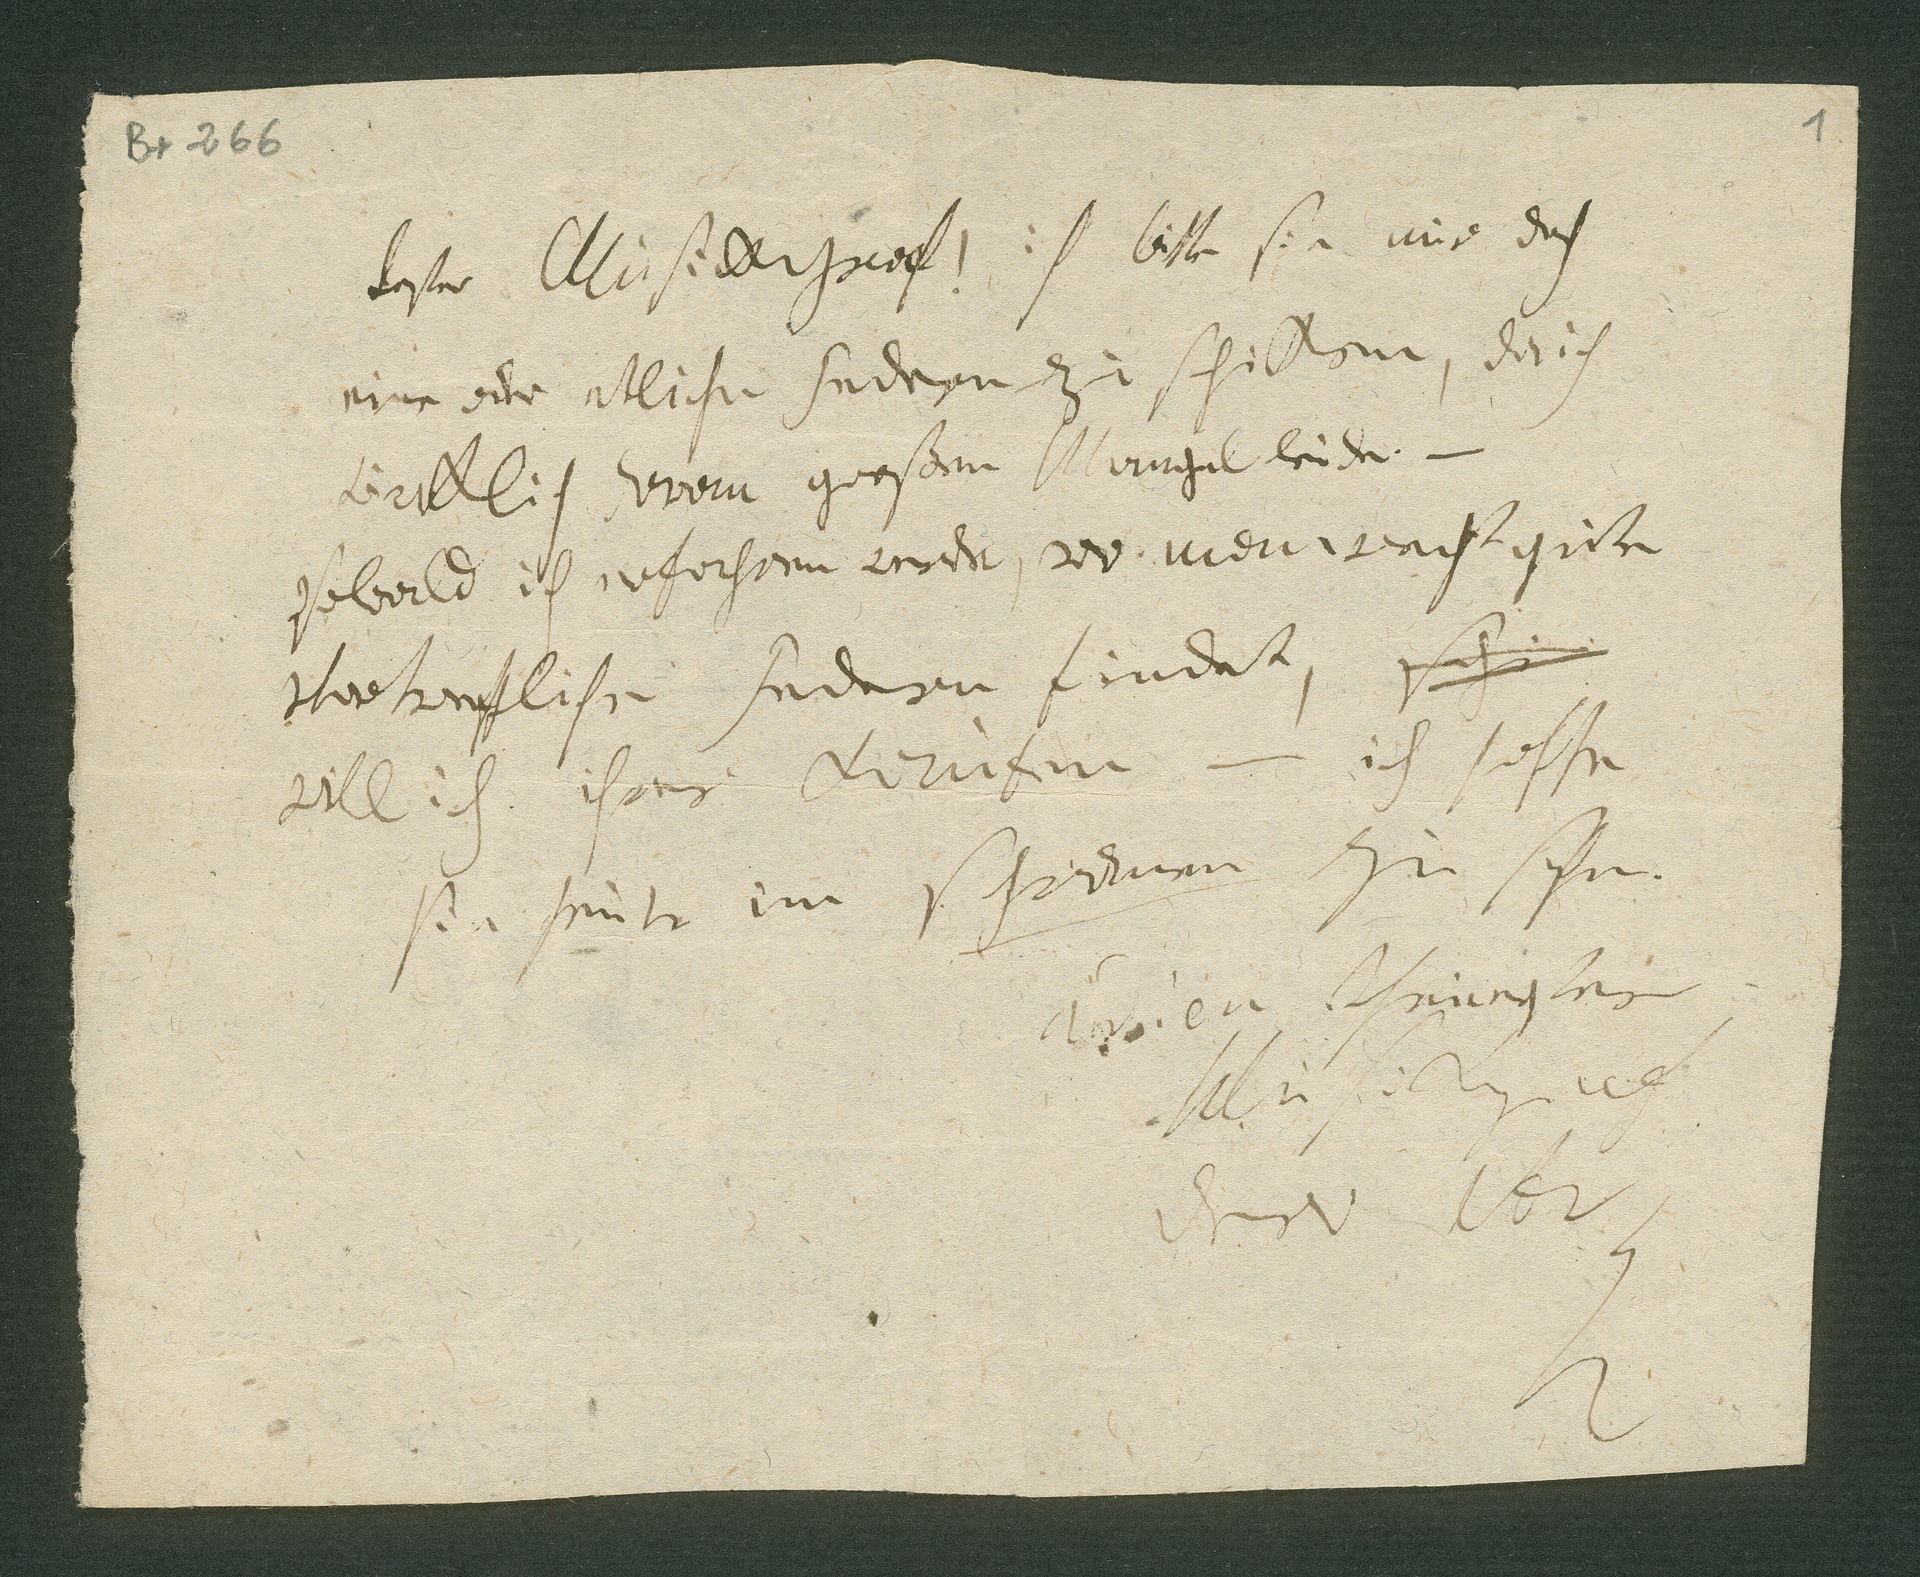 Br 266
1
bester Musickgraf! ich bitte sie mir doch
eine oder etliche Federn zu schicken, da ich
wircklich daran großen Mangel leide. —
sobald ich erfahren werde, wo man recht gute
vortreffliche Federn findet,
will ich ihrer kaufen — ich hoffe
sie heute im schwanen zu sehn.
Adieu theuerster
Musickgraf
dero